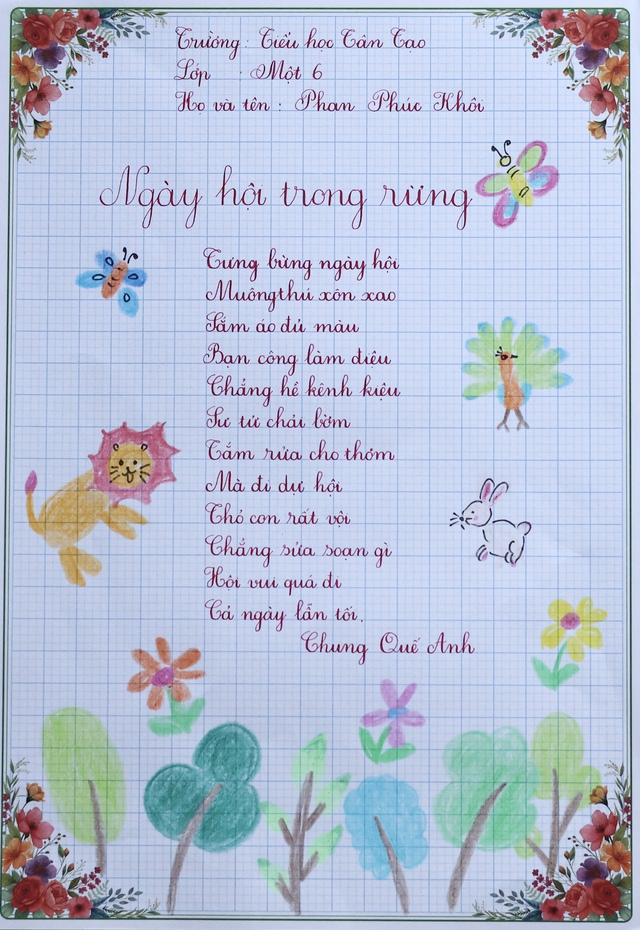 Trường: Tiểu học Tân Tạo
Lớp : Một 6
Họ và tên : Phan Phúc Khôi
Ngày hội trong rừng
Tưng bừng ngày hội
Muông thú xôn xao
Sắm áo đủ màu
Bạn công làm điệu
Chẳng hề kênh kiệu
Sư tử chải bờm
Tắm rửa cho thơm
Mà đi dự hội
Thỏ con rất vội
Chẳng sửa soạn gì
Hội vui quá đi
Cả ngày lẫn tối.
Chung Quế Anh